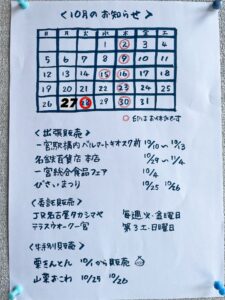 <10月のお知らせ>
日 月 火 水 木 金 土
1 2 3 4
5 6 7 8 9 10 11
12 13 14 15 16 17 18
19 20 21 22 23 24 25
26 27 28 29 30 31
○印はお休みです
<出張販売>
一宮駅構内パルマートキオスク前 10/10〜10/13
名鉄百貨店本店 10/29〜11/4
一宮総合食品フェア 10/4
びさいまつり 10/25 10/26
<委託販売>
JR名古屋タカシマヤ 毎週火・金曜日
テラスウォーク一宮 第3土・日曜日
栗きんとん 10/1から販売
山栗おこわ 10/25 10/26